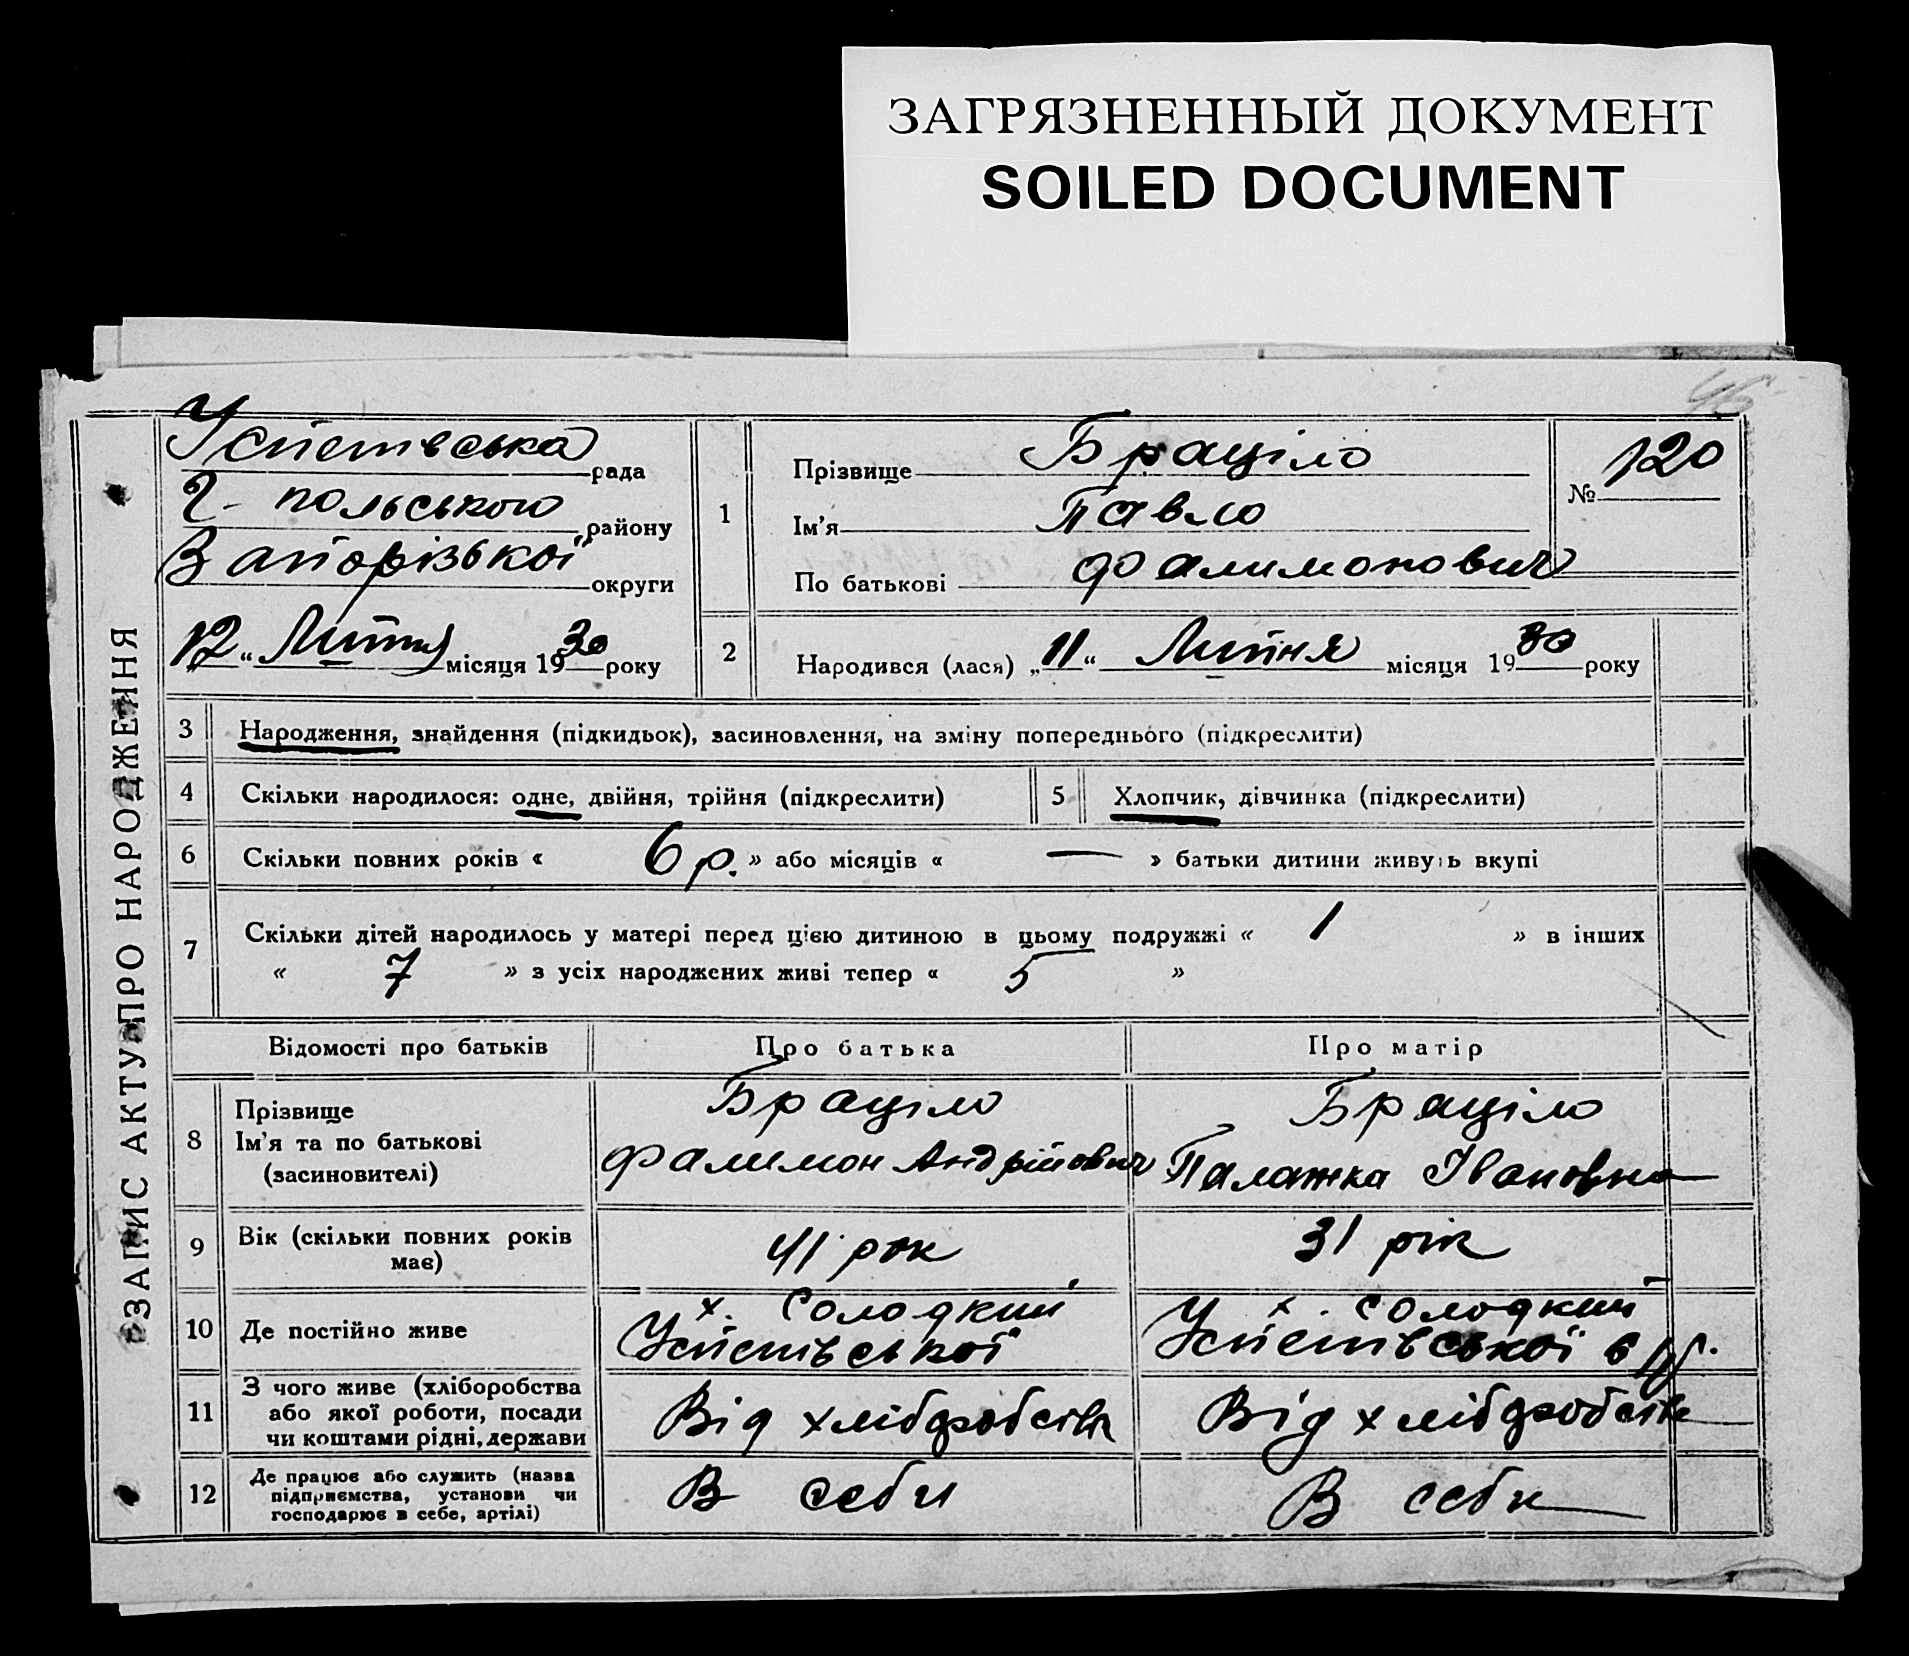 ЗАГРЯЗНЕННЫЙ ДОКУМЕНТ
SOILED DOCUMENT
46
ЗАПИС АКТУ ПРО НАРОДЖЕННЯ
Успенівська рада
Г-польського району
Запорізької округи
12 „ Липня місяця 1930 року
1
Прізвище Браціло
Ім'я Павло
По батькові Фалимонович
№ 120
2
Народився (лася) „11“ Липня місяця 1930 року
3 Народження, знайдення (підкидьок), засиновлення, на зміну попереднього (підкреслити)
4 Скільки народилося: одне, двійня, трійня (підкреслити)
5 Хлопчик, дівчинка (підкреслити)
6 Скільки повних років « 6 р. » або місяців « — » батьки дитини живуть вкупі
7 Скільки дітей народилось у матері перед цією дитиною в цьому подружжі « 1 » в інших
« 7 » з усіх народжених живі тепер « 5 »
Відомості про батьків Про батька Про матір
8
Прізвище
Ім'я та по батькові
(засиновителі)
Браціло
Фалимон Андрійович
Браціло
Палажка Івановна
9
Вік (скільки повних років
має)
41 рок
31 рік
10 Де постійно живе
х. Солодкий
Успенівської
х. Солодкий
Успенівської
11
З чого живе (хліборобства
або якої роботи, посади
чи коштами рідні, держави
Від хліборобств
Від хліборобств
12
Де працює або служить (назва
підприємства, установи чи
господарює в себе, артілі)
В себи
В себи